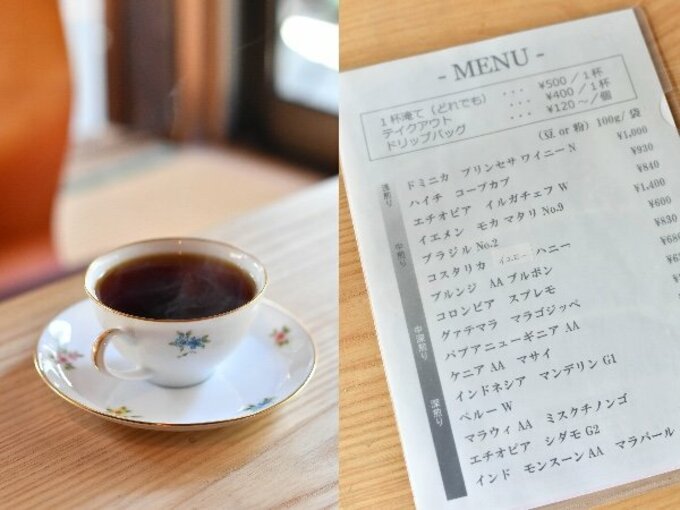 - MENU -
1杯淹て（どれでも） ・・・ ¥500／1杯
テイクアウト ・・・ ¥400／1杯
ドリップバッグ ・・・ ¥120～／個
（豆 or 粉）100g／袋
ドミニカ プリンセサ ワイニー N ¥1,000
ハイチ コープカブ ¥930
エチオピア イルガチェフ W ¥840
イエメン モカ マタリ No.9 ¥1,400
ブラジル No.2 ¥600
コスタリカ ハニー ¥830
ブルンジ AA ブルボン
コロンビア スプレモ
グァテマラ マラゴジッペ
パプアニューギニア AA
ケニア AA マサイ
インドネシア マンデリン G1
ペルー W
マラウィ AA ミスクチノンゴ
エチオピア シダモ G2
インド モンスーン AA マラバール
浅煎り
中煎り
中深煎り
深煎り